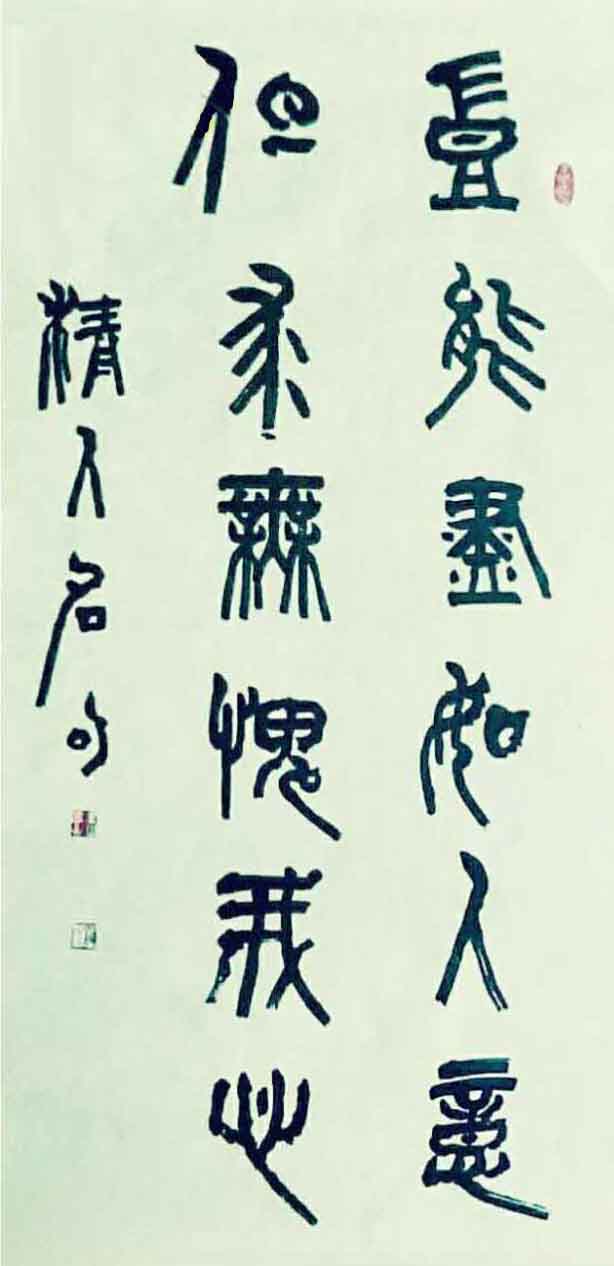 豈能盡如人意
但求無愧我心
精人名句